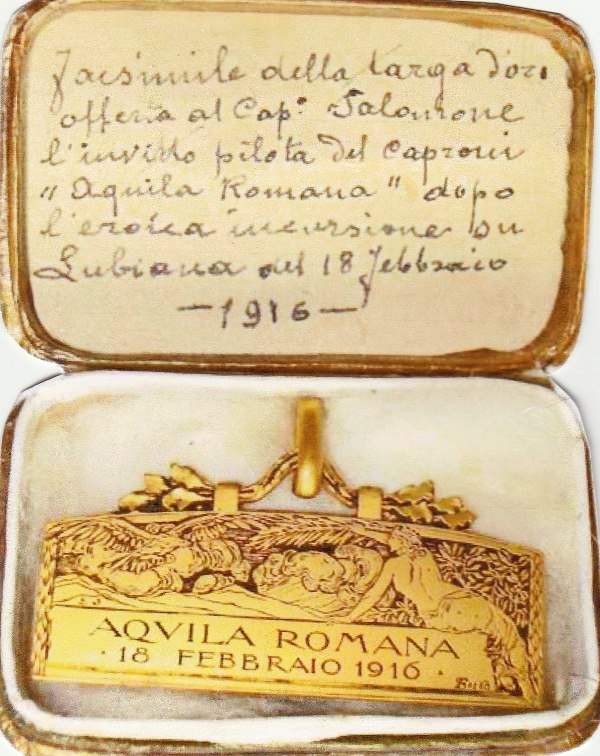 Facsimile della targa d'oro
offerta al Cap.º Salomone
l'invitto pilota del Caproni
"Aquila Romana" dopo
l'eroica incursione su
Lubiana del 18 febbraio
—1916—
AQVILA ROMANA
· 18 FEBBRAIO 1916 ·